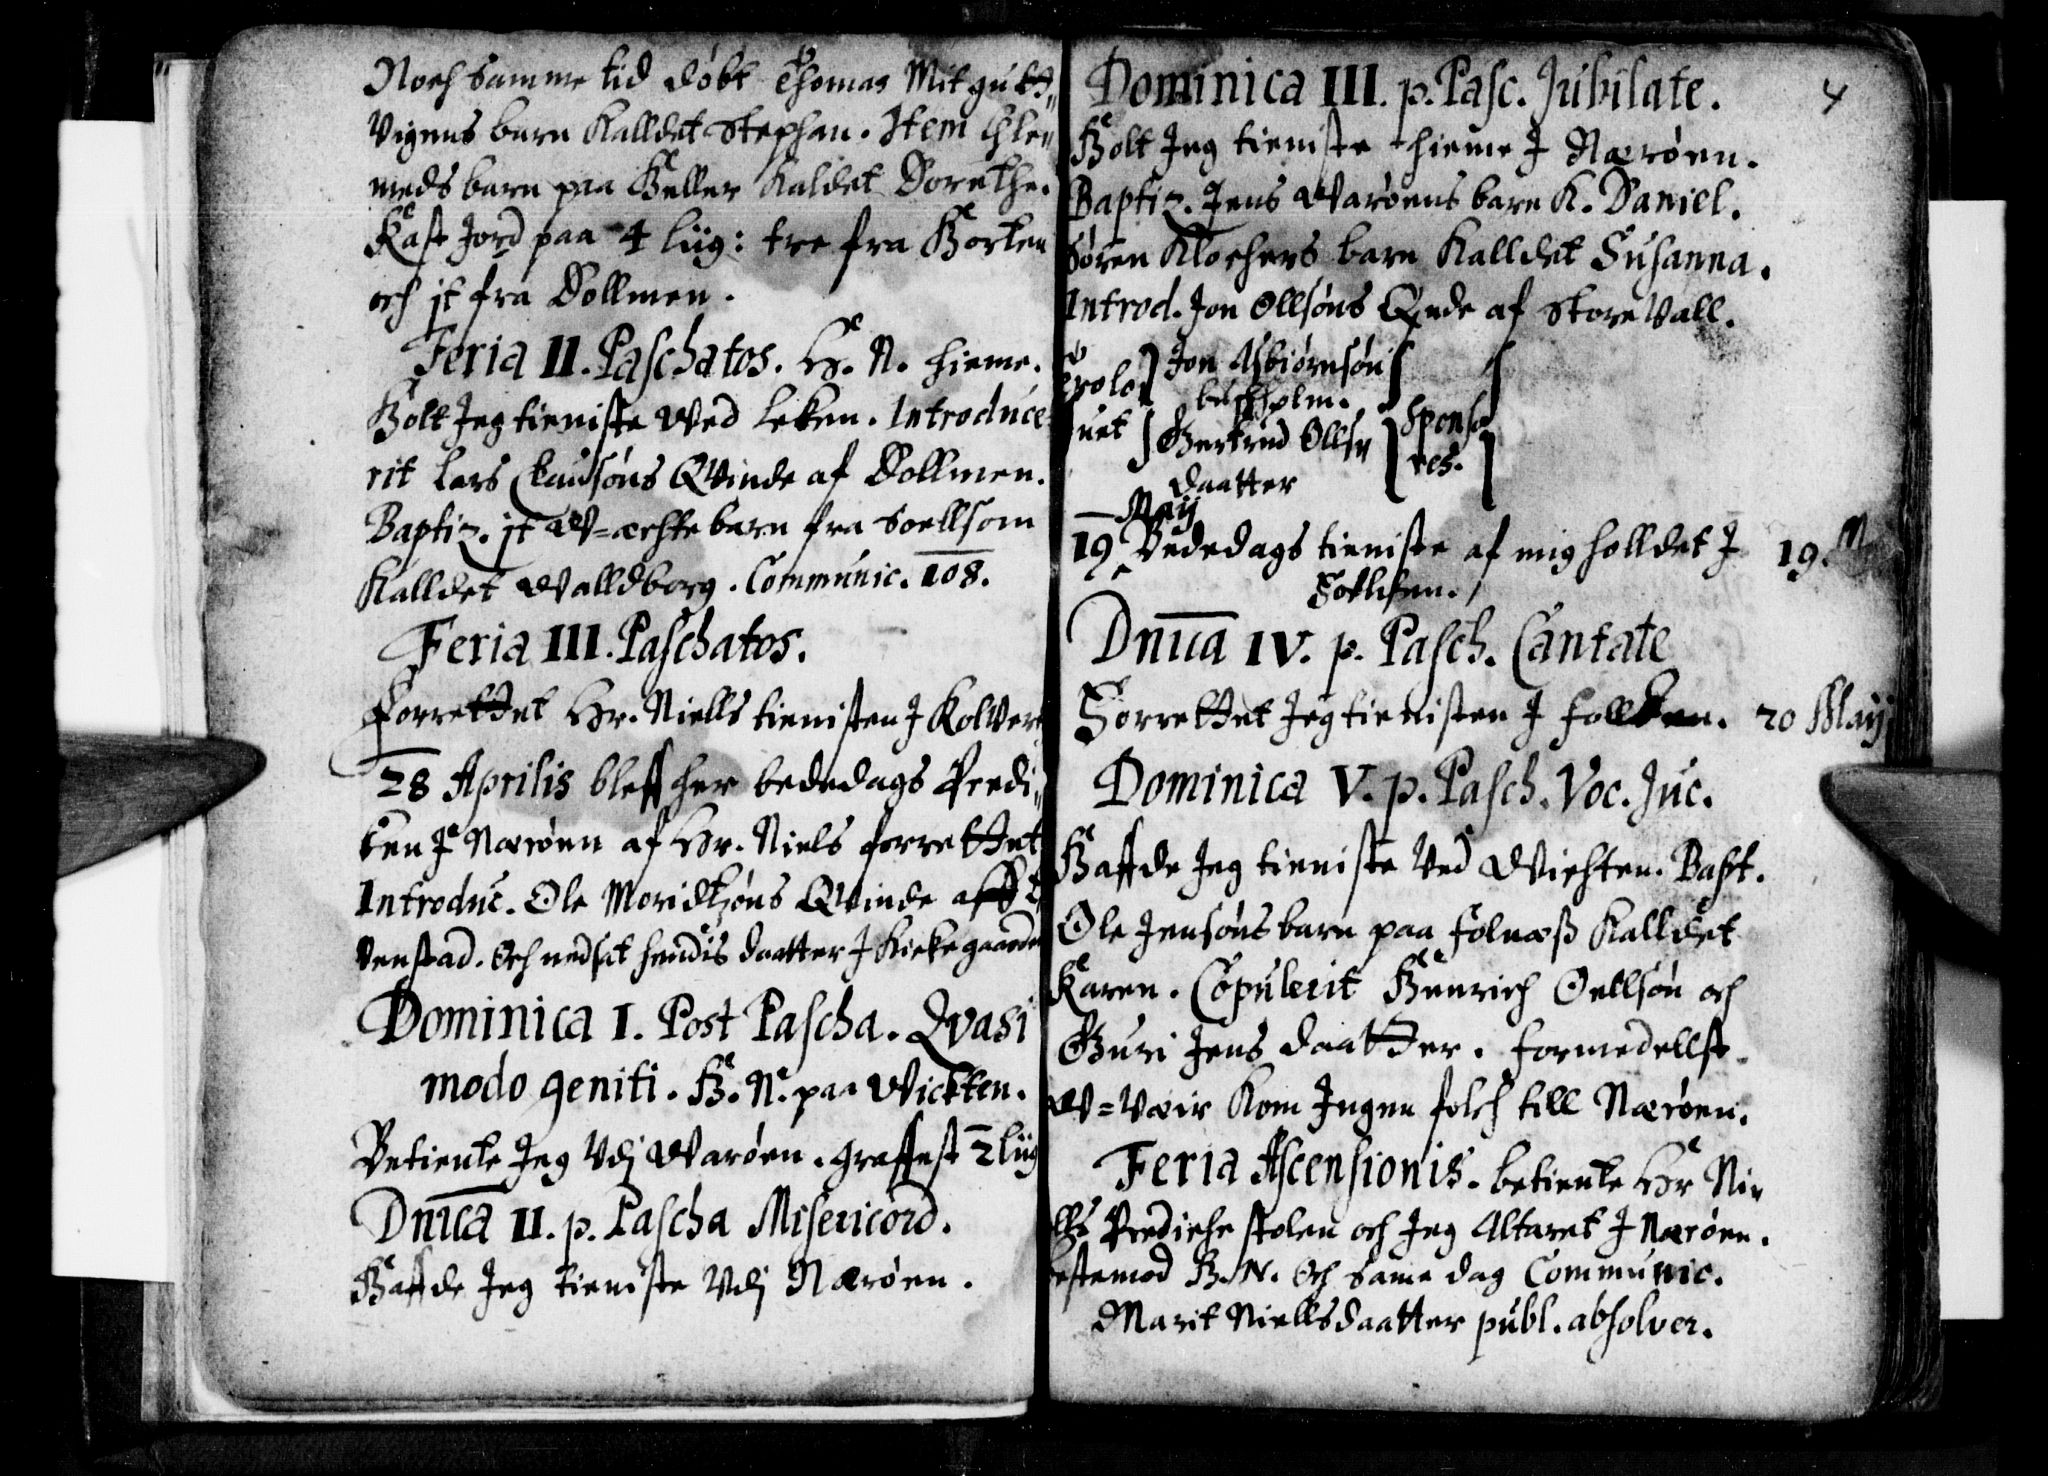 Noch samme tid døbt Thomas Mitgutt
Vigens barn Kalldet Stephan. Item
meds barn paa Heller Kaldet Dorethe.
Kast Jord paa 4 liig: tre fra Horten
och jt fra Dollmen.
Feria II. Paschatos. H. N. hieme.
Holt Jeg tieniste Ved Leken. Introduce
rit Lars Clausøns Qvinde af Dollmen.
Baptiz. jt W=æchte barn fra Soellsom
Kalldet Walldborg. Communic. 108.
Feria III. Paschatos.
Forrettet Hr. Niells tienisten J Kolvere
28 Aprilis bleff her bededags Predi¬
ken J Nærøen af Hr. Niels forrettet
Introduc. Ole Moridtzøns Qvinde aff
Venstad. Och nedsat hendis daatter J Kirkegaarden
Dominica I. Post Pascha. Qvasi
modo geniti. H. N. paa Wickten.
Betiente Jeg Vdj Warøen. Graffest 2 liig
Dnica II. p. Pascha Misericord.
Haffde Jeg tieniste Vdj Nærøen.
Dominica III. p. Pasc. Jubilate. 4
Holt Jeg tieniste hieme J Nærøen.
Baptiz. Jens Warøens barn K. Daniel.
Søren Klochers barn Kalldet Susanna.
Introd. Jon Ollsøns Qnde af Store Vall.
Jon Asbiørnsøn
buschholm.
Gertrud Ollss
Sponso
res.
daatter
Maij
19 Bededags tieniste af mig holldet J 19. M
Follesen.
Dnica IV. p. Pasch. Cantate
Forrettet Jeg tienisten J Follesen. 20 Maij
Dominica V. p. Pasch. Voc. Juc.
Haffde Jeg tieniste Ved Wichten. Bapt.
Ole Jensøns barn paa Folnæss Kalldet
Karen. Copulerit Henrich Oellsøn och
Guri Jens daatter. Formedellst
W=væir Kom Jngen folch till Nærøen.
Feria Ascensionis. betiente Hr Nie
lls Prediche stolen och Jeg Altaret J Nærøen.
Festemod H. N. Och same dag Communic.
Marit Niellsdaatter publ. absolver.